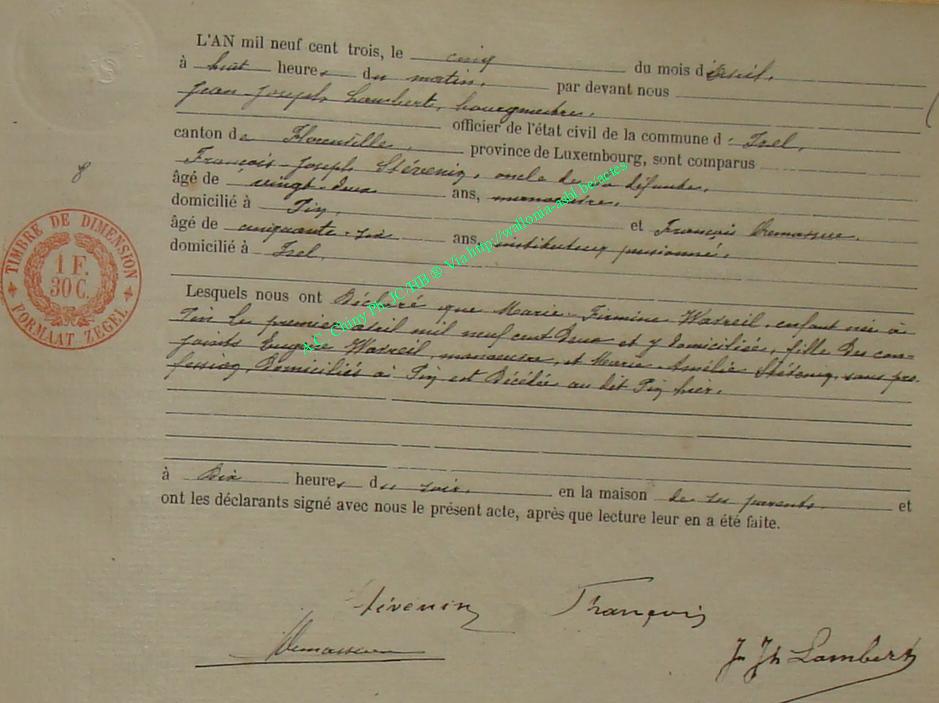 L'AN mil neuf cent trois, le cinq du mois d'avril,
à huit heures du matin, par devant nous
Jean Joseph Lambert, bourgmestre,
officier de l'état civil de la commune d' Izel,
canton de Florenville, province de Luxembourg, sont comparus
François-Joseph Stévenin, oncle de la défunte,
âgé de vingt-deux ans, manœuvre,
domicilié à Pin, et François Demasure
âgé de cinquante-six ans, instituteur pensionné,
domicilié à Izel,
8
TIMBRE DE DIMENSION
1 F.
30 C.
FORMAAT ZEGEL
A.C. Chiny Ph. JC.HB © Via http://wallonia-asbl.be/actes
Lesquels nous ont Déclaré que Marie Firmine Watreil, enfant née à
Pin le premier avril mil neuf cent Deux et y domiciliée, fille Des con-
joints Eugène Watreil, manœuvre, et Marie Amélie Stévenin, sans pro-
fession, Domiciliés à Pin est Décédée au dit Pin hier,
à Dix heures du soir, en la maison de ses parents et
ont les déclarants signé avec nous le présent acte, après que lecture leur en a été faite.
Stévenin François
J. Jh Lambert